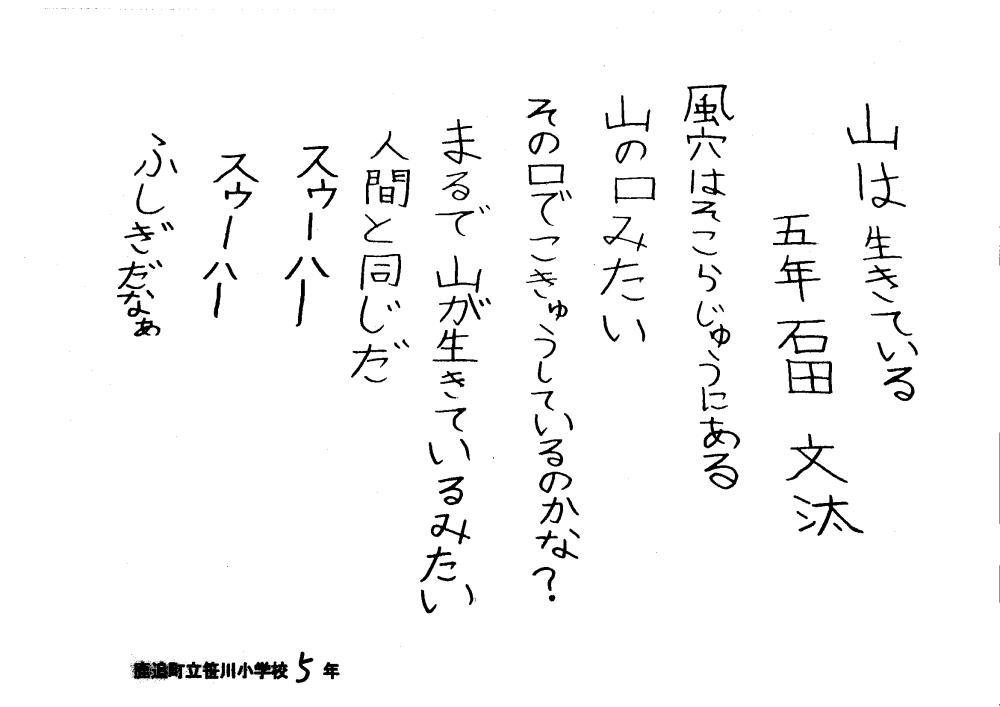 山は生きている
五年 石田 文汰
風穴はそこらじゅうにある
山の口みたい
その口でこきゅうしているのかな？
まるで山が生きているみたい
人間と同じだ
スゥーハー
スゥーハー
ふしぎだなぁ
鹿追町立笹川小学校 5 年